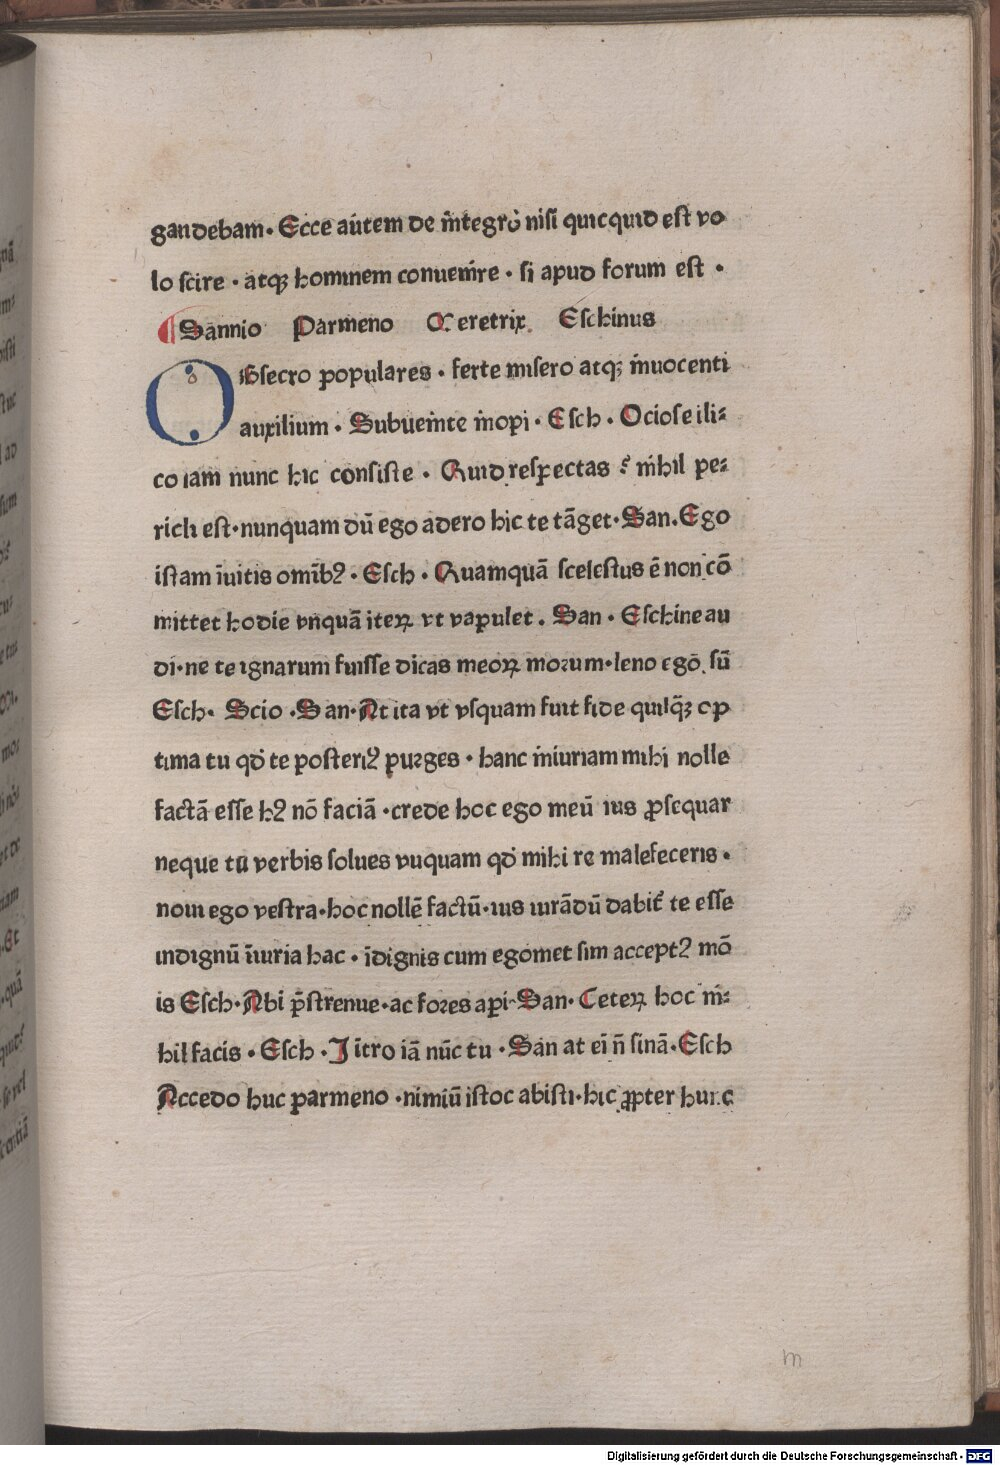 gandebam. Ecce aūtem de m̄tegrȯ nisi quicquid est vo
lo scire · atqꝫ hominem conuenīre · si apud forum est ·
¶ Sannio Parmeno Meretrix Eschinus
Obsecro populares · ferte misero atqꝫ īnuocenti
auxilium · Subuenīte īnopi · Esch · Ociose ili⸗
co iam nunc hic consiste · Quid respectas ? nīhil pe⸗
ricli est · nunquam dū ego adero hic te tāget · San. Ego
istam īuitis omībꝰ · Esch · Quamquā scelestus ē non cō
mittet hodie vnquā iteꝝ vt vapulet . San · Eschine au
di · ne te ignarum fuisse dicas meoꝝ moꝛum · leno egō sū
Esch · Scio · San · At ita vt vsquam fuit fide quilqꝫ op
tima tu qđ te posteriꝰ puꝛges · hanc īniuriam mihi nolle
factā esse hꝰ nō faciā · crede hoc ego meū ius ꝓsequar
neque tu verbis solues vuquam qđ mihi re malefeceris ·
noui ego vestra · hoc nollē factū · ius iurādū dabit̄ te esse
indignū īiuria hac · īdignis cum egomet sim acceptꝰ mō
is Esch · Abi p̄strenue · ac foꝛes api · San · Ceteꝝ hoc nī⸗
hil facis · Esch · Jītro iā nūc tu · San at eī n̄ sinā · Esch
Accedo huc parmeno · nimiū istoc abisti · hic ꝓpter hunc
m
Digitalisierung gefördert durch die Deutsche Forschungsgemeinschaft - DFG